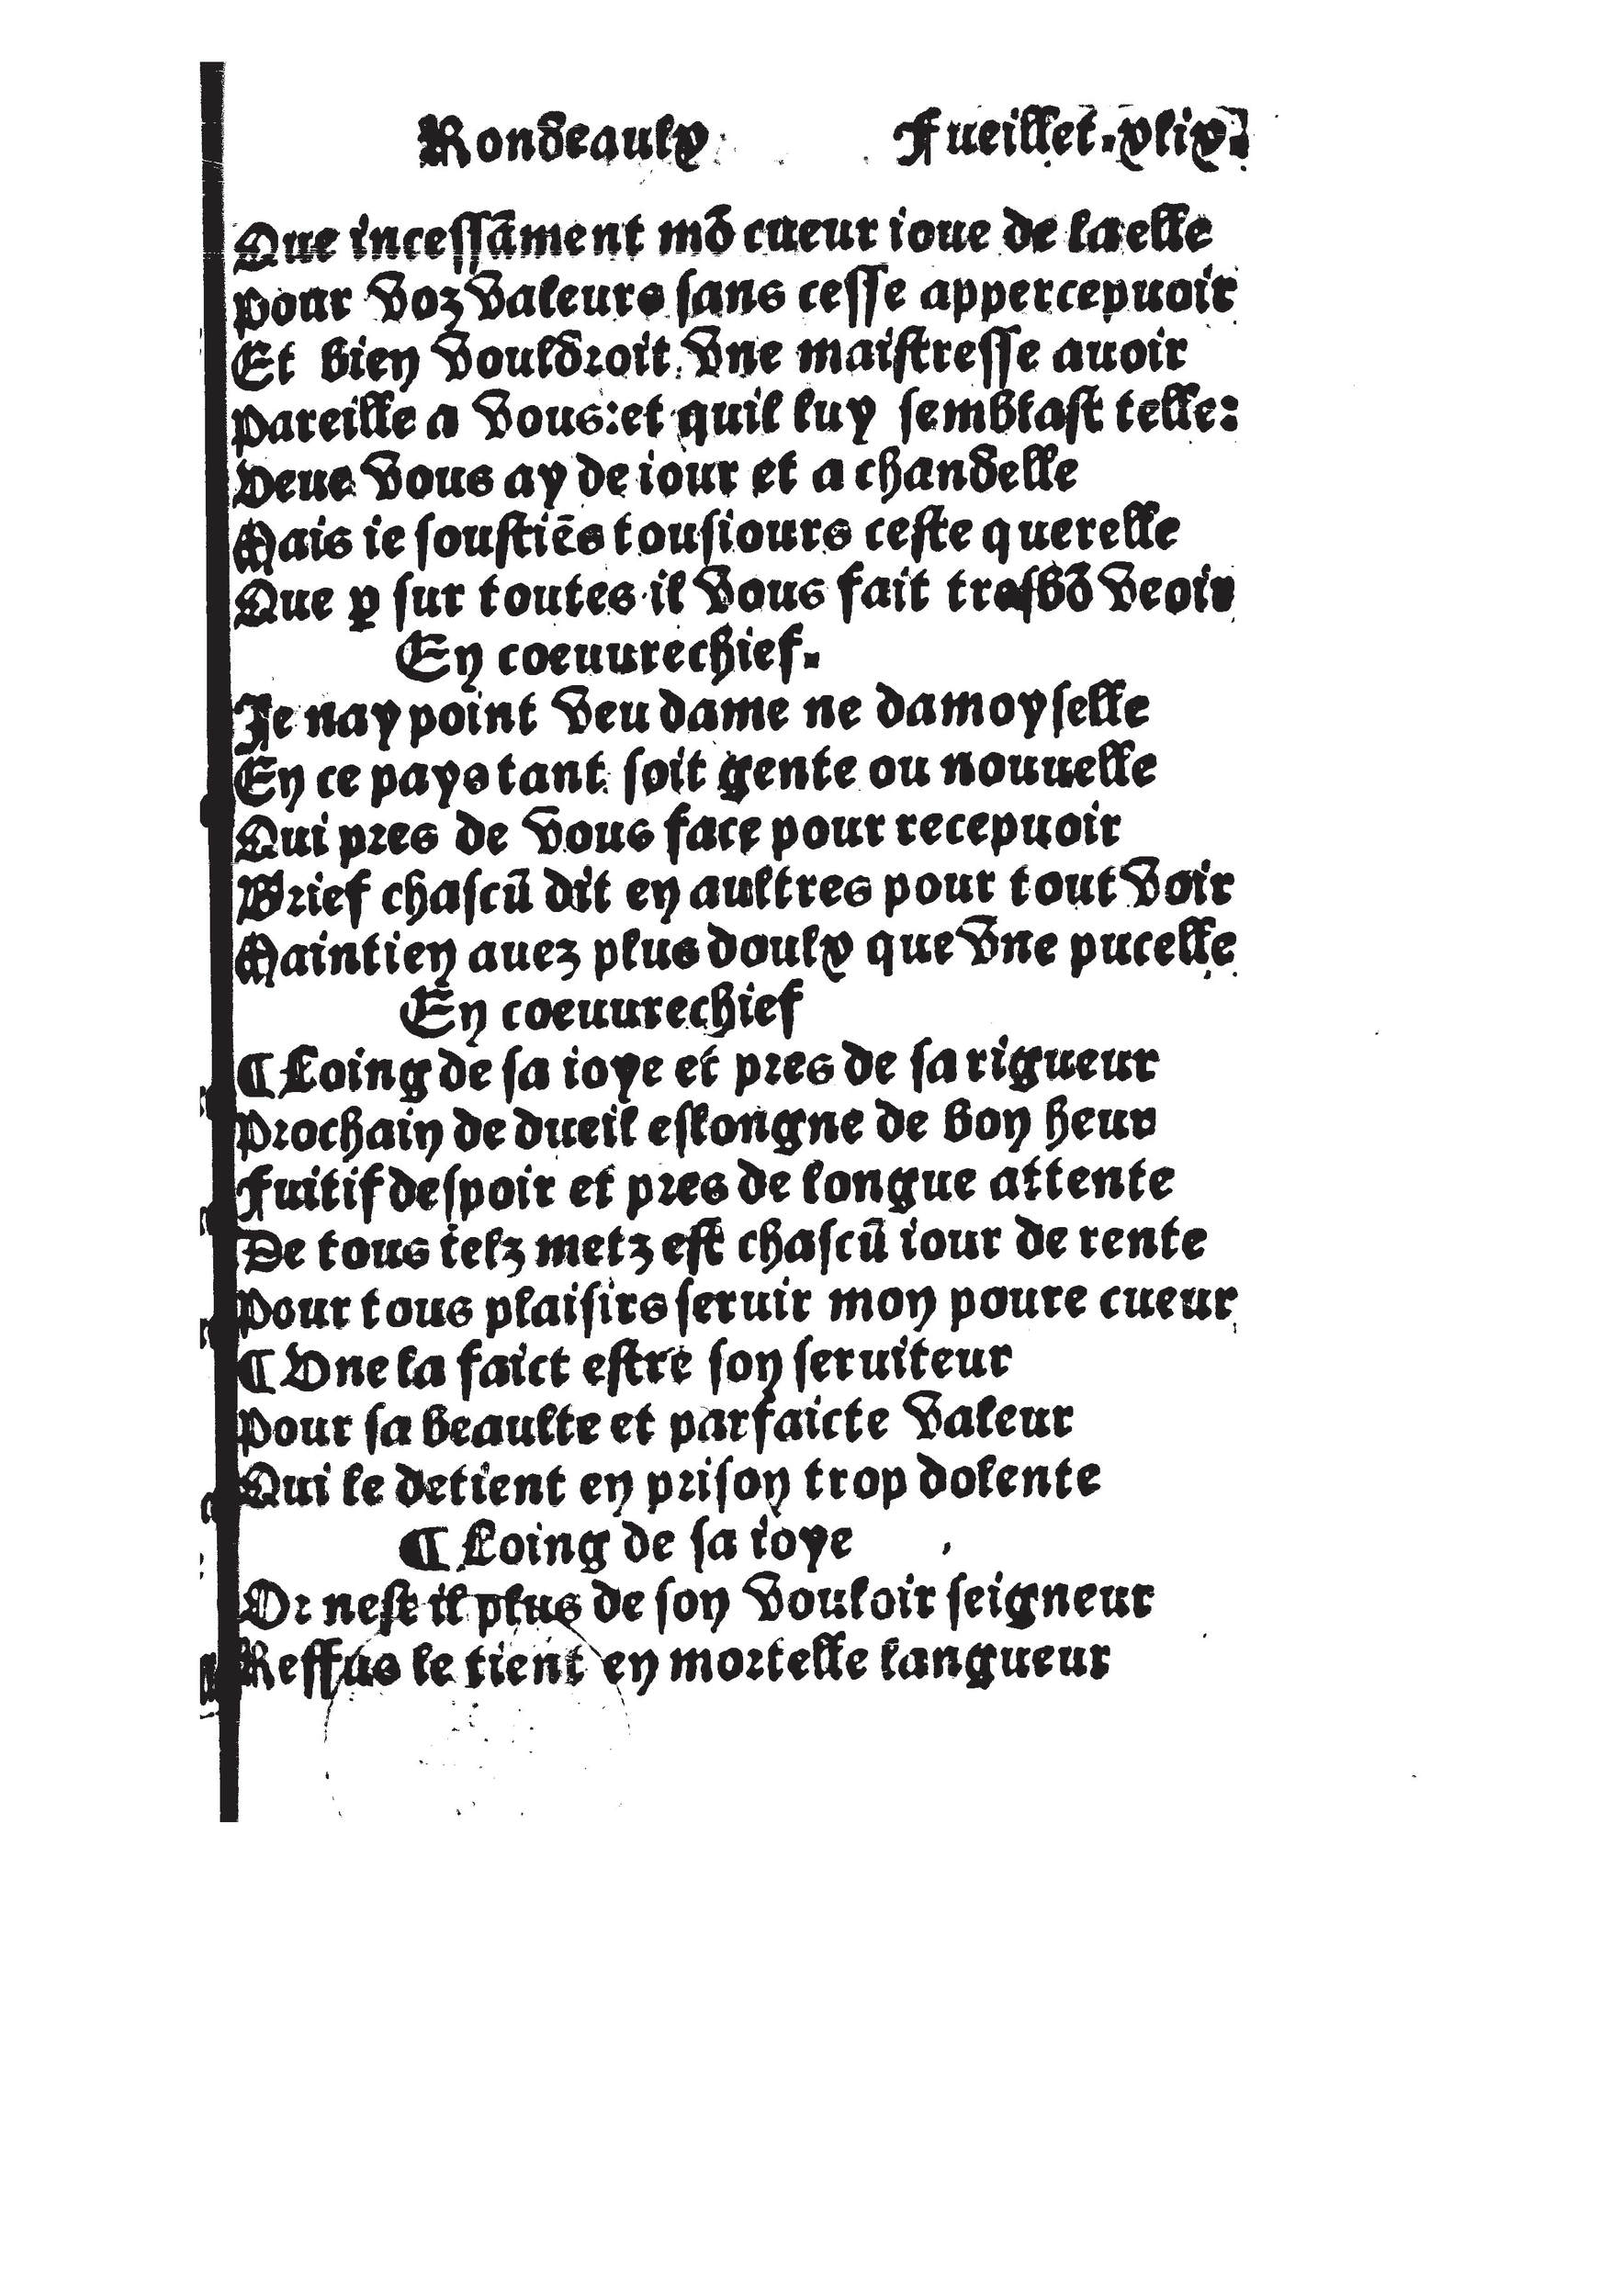 Rondeaulx Fueillet.xlix.
Que incessãment mõ cueur ioue de laelle
Pour voz valeurs sans cesse appercepuoir
Et bien vouldroit vne maistresse auoir
Pareille a vous:et quil luy semblast telle:
Veue vous ay de iour et a chandelle
Mais ie soustiẽs tousiours ceste querelle
Que ꝑ sur toutes il vous fait tresbõ veoir
En coeuurechief.
Je nay point veu dame ne damoyselle
En ce pays tant soit gente ou nouuelle
Qui pres de vous face pour recepuoir
Brief chascũ dit en aultres pour tout voir
Maintien auez plus doulx que vne pucelle
En coeuurechief
¶ Loing de sa ioye et pres de sa rigueur
Prochain de dueil eslongne de bon heur
Fuitif despoir et pres de longue attente
De tous telz metz est chascũ iour de rente
Pour tous plaisirs seruir mon poure cueur
¶ Vne la faict estre son seruiteur
Pour sa beaulte et parfaicte valeur
Qui le detient en prison trop dolente
¶ Loing de sa ioye
Or nest il plus de son vouloir seigneur
Reffus le tient en mortelle langueur